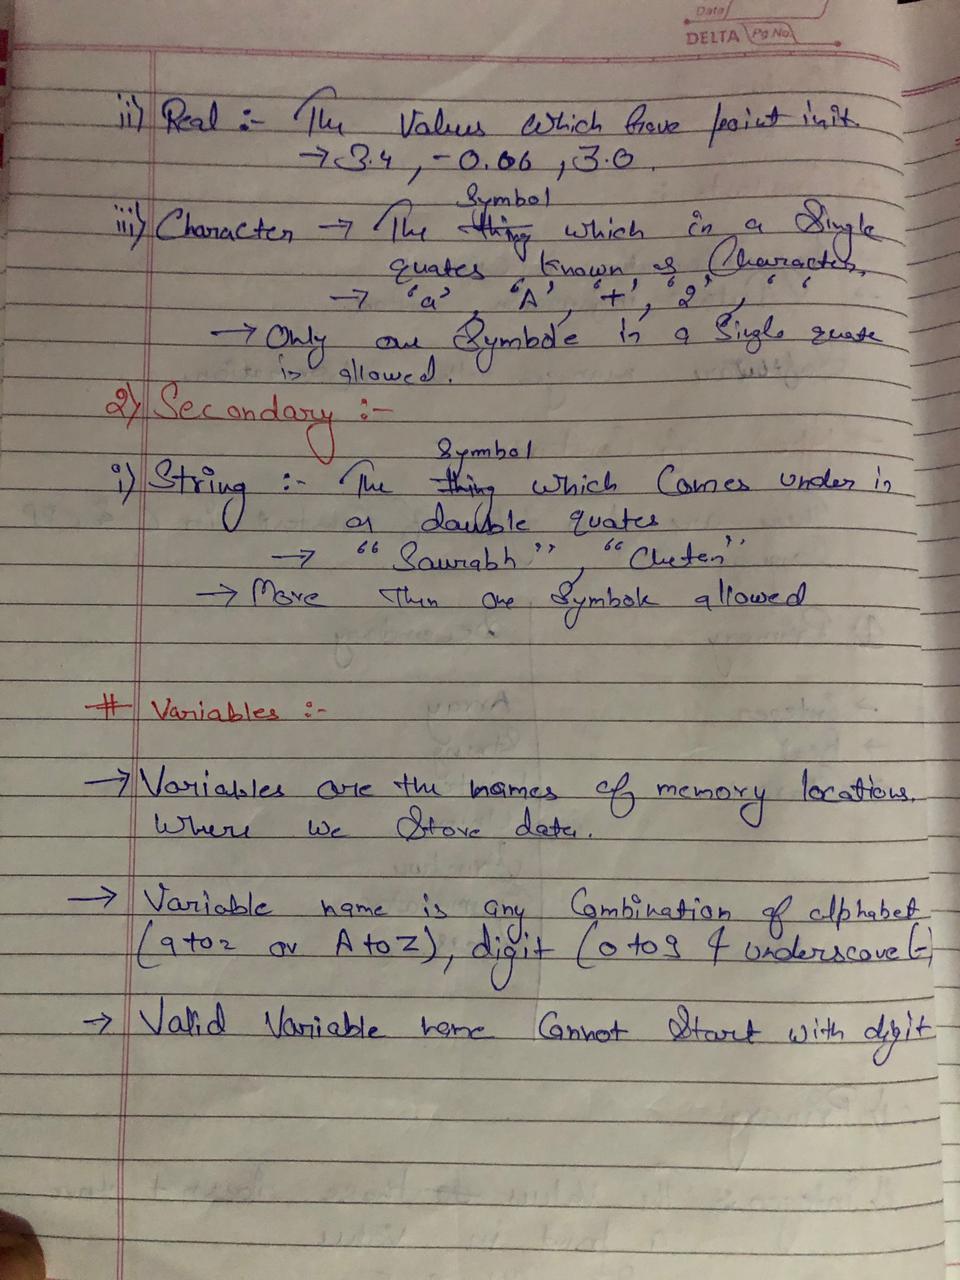 Date
DELTA Pg No.
ii) Real :- The Values which have point init.
→ 3.4, -0.06, 3.0
Symbol
iii) Character → The thing which in a Single
quates known as Character.
→ 'a', 'A', '+', '2', ' '
→ Only one Symbole in a Single quate
is allowed.
2) Secondary :-
Symbol
i) String :- The thing which Comes under in
a double quates
→ "Saurabh", "Cheten"
→ More then one Symbole allowed
# Variables :-
→ Variables are the names of memory locations.
Where we Store data.
→ Variable name is any Combination of alphabet
(a to z or A to Z), digit (0 to 9 & underscore (-)
→ Valid Variable name Cannot Start with digit